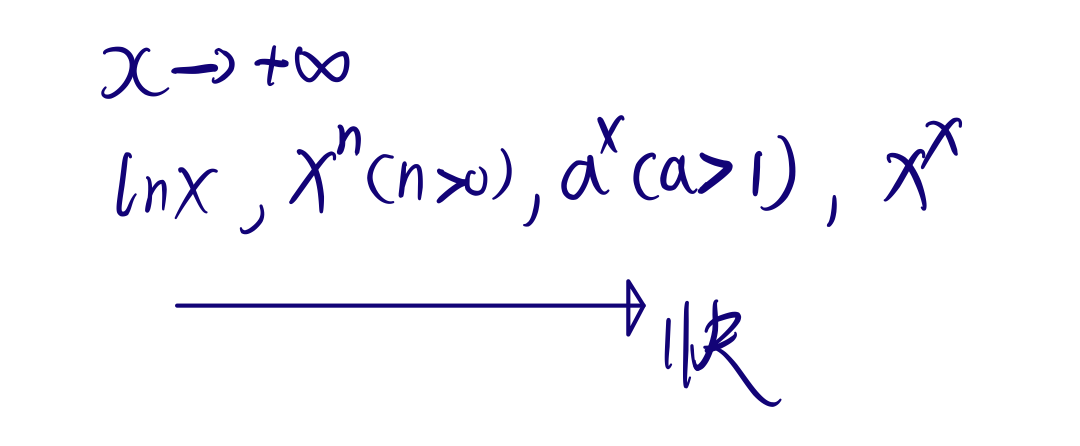 x→+∞
lnx, xⁿ(n>0), aˣ(a>1), xˣ
快